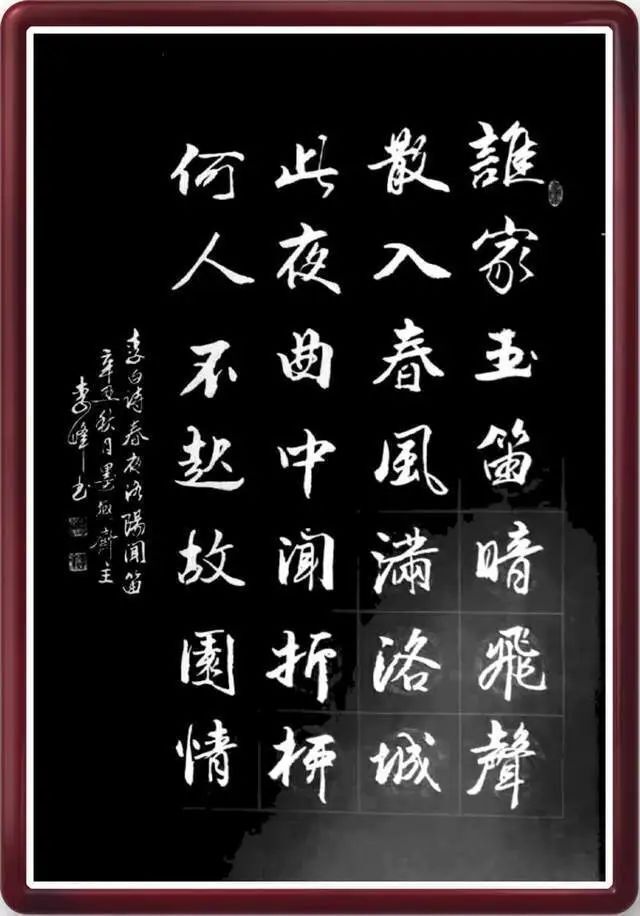 誰家玉笛暗飛聲
散入春風滿洛城
此夜曲中聞折柳
何人不起故園情
李白诗春夜洛陽聞笛
辛丑秋月墨齋主
李峰书